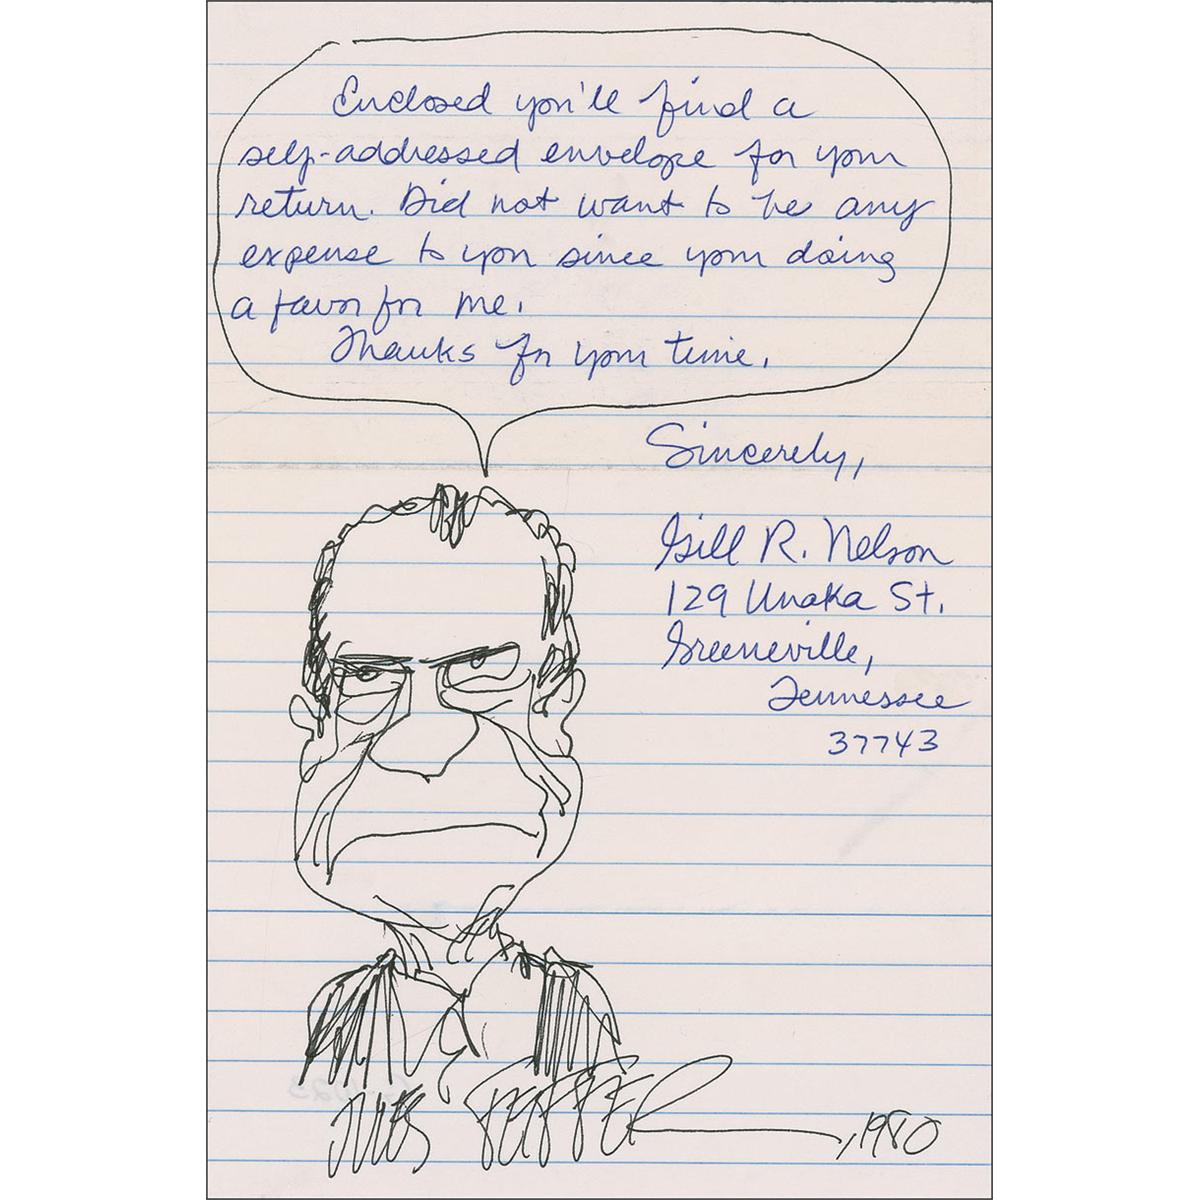 Enclosed you'll find a
self-addressed envelope for your
return. Did not want to be any
expense to you since your doing
a favor for me.
Thanks for your time.
Sincerely,
Gill R. Nelson
129 Unaka St.
Greeneville,
Tennessee
37743
JULES FEIFFER, 1980